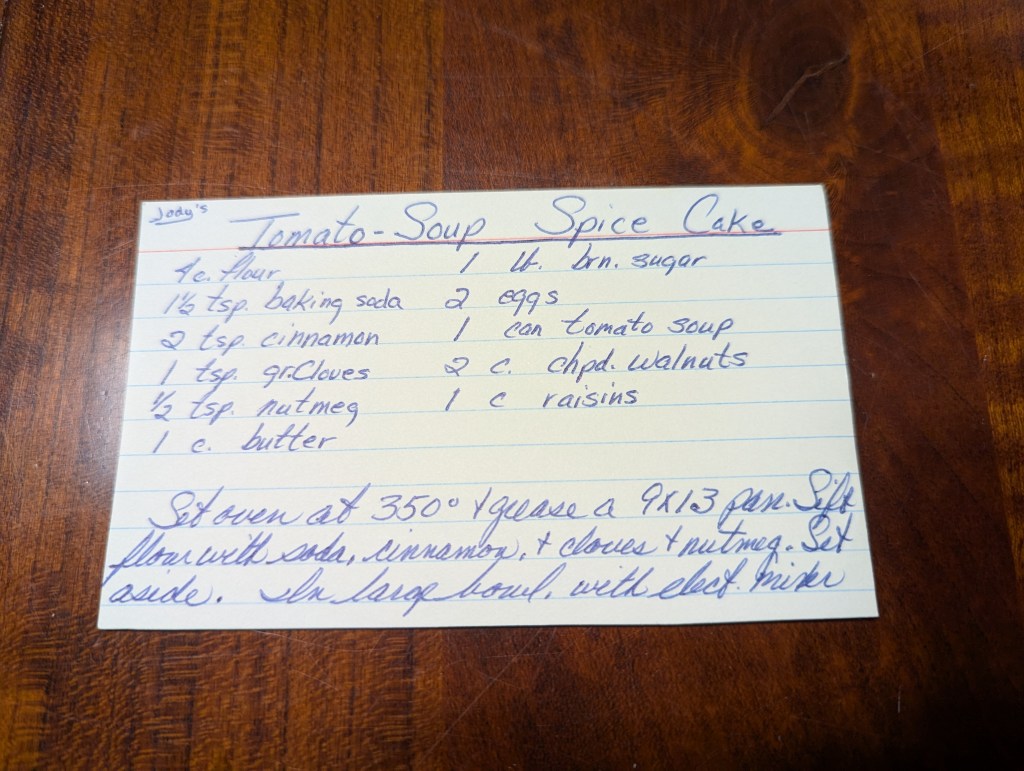 Jody's
Tomato-Soup Spice Cake
4 c. flour 1 lb. brn. sugar
1½ tsp. baking soda 2 eggs
2 tsp. cinnamon 1 can tomato soup
1 tsp. gr. Cloves 2 c. chpd. walnuts
½ tsp. nutmeg 1 c raisins
1 c. butter
Set oven at 350° + grease a 9x13 pan. Sift
flour with soda, cinnamon, + cloves + nutmeg. Set
aside. In large bowl, with elect. mixer